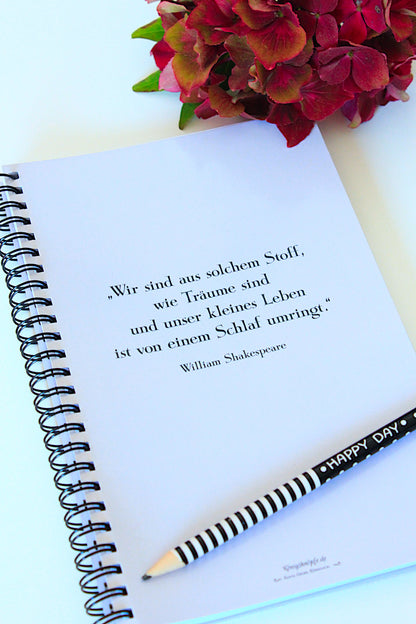 „Wir sind aus solchem Stoff,
wie Träume sind
und unser kleines Leben
ist von einem Schlaf umringt.“
William Shakespeare
HAPPY DAY